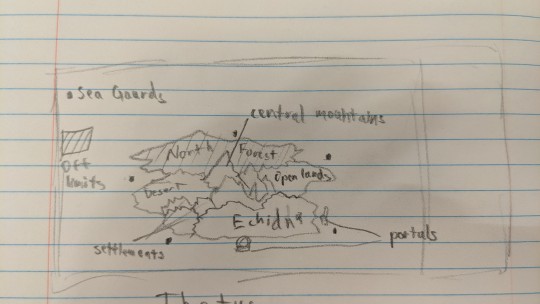 • Sea Gaurds
central mountains
North Forest
Off
limits
Desert
Open lands
Echidna
settlements
portals